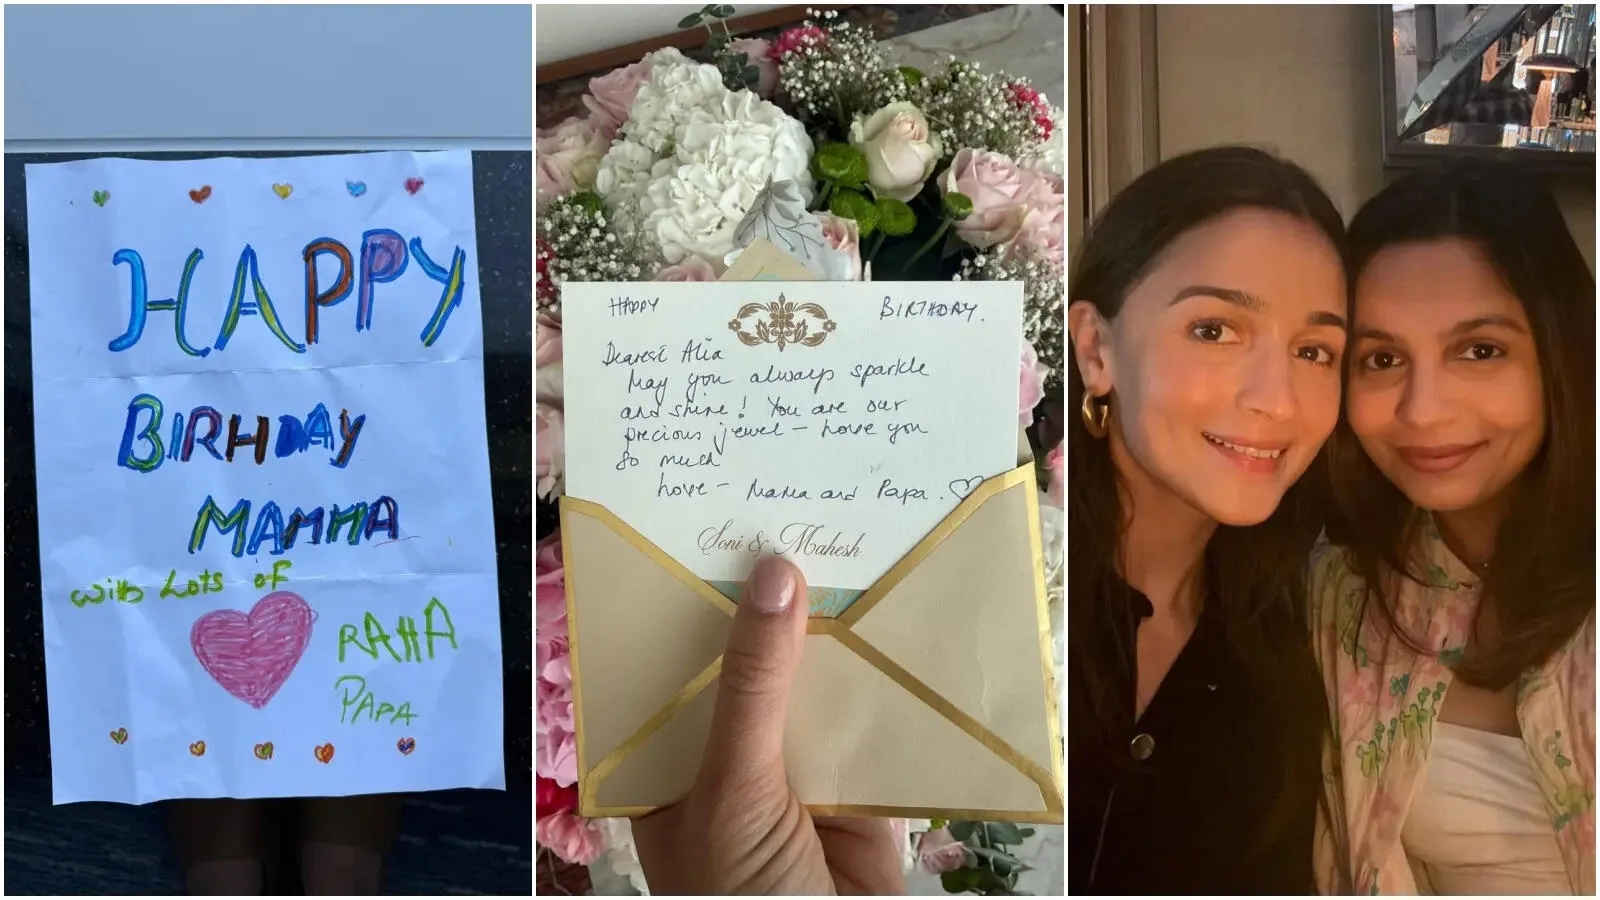 HAPPY
BIRHDAY
MAMMA
with LOTS OF
RAHA
PAPA
HAPPY BIRTHDAY.
Dearest Alia
May you always sparkle
and shine! You are our
precious jewel – Love you
so much
Love – Mama and Papa.
Soni & Mahesh